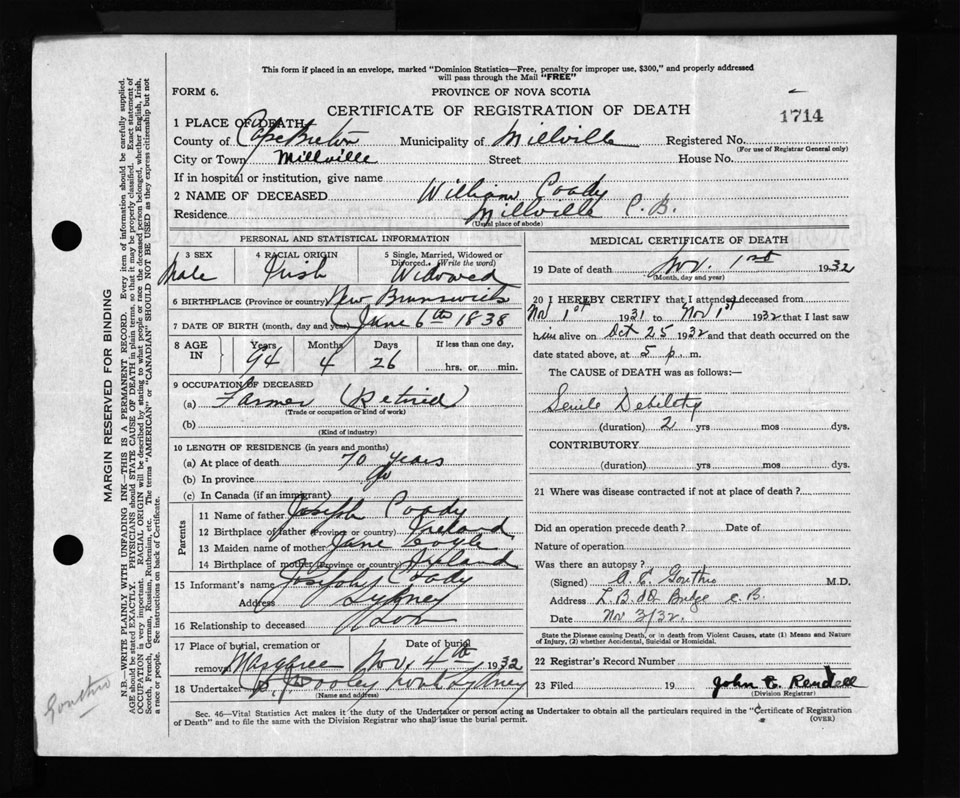 This form if placed in an envelope, marked "Dominion Statistics—Free, penalty for improper use, $300," and properly addressed
will pass through the Mail "FREE"
FORM 6.
PROVINCE OF NOVA SCOTIA
CERTIFICATE OF REGISTRATION OF DEATH
1714
1 PLACE OF DEATH
County of Cape Breton Municipality of Millville Registered No.
(For use of Registrar General only)
City or Town Millville Street House No.
If in hospital or institution, give name
2 NAME OF DECEASED William Coady
Residence Millville C.B.
(Usual place of abode)
PERSONAL AND STATISTICAL INFORMATION
3 SEX 4 RACIAL ORIGIN 5 Single, Married, Widowed or Divorced. (Write the word)
Male Irish Widowed
6 BIRTHPLACE (Province or country) New Brunswick
7 DATE OF BIRTH (month, day and year) June 6th 1838
8 AGE IN Years Months Days If less than one day,
94 4 26 hrs. or min.
9 OCCUPATION OF DECEASED
(a) Farmer (Retired)
(Trade or occupation or kind of work)
(b)
(Kind of industry)
10 LENGTH OF RESIDENCE (in years and months)
(a) At place of death 70 years
(b) In province do
(c) In Canada (if an immigrant)
Parents
11 Name of father Joseph Coady
12 Birthplace of father (Province or country) Ireland
13 Maiden name of mother Jane Coyle
14 Birthplace of mother (Province or country) Ireland
15 Informant's name Joseph Coady
Address Sydney
16 Relationship to deceased Son
17 Place of burial, cremation or Date of burial
removal Margaree Nov. 4th 1932
18 Undertaker Sydney
(Name and address)
MEDICAL CERTIFICATE OF DEATH
19 Date of death Nov. 1st 1932
(Month, day and year)
20 I HEREBY CERTIFY that I attended deceased from
Nov 1st 1931 to Nov 1st 1932 that I last saw
him alive on Oct 25 1932 and that death occurred on the
date stated above, at 5 p. m.
The CAUSE of DEATH was as follows:—
Senile Debility
(duration) 2 yrs mos dys.
CONTRIBUTORY
(duration) yrs. mos. dys.
21 Where was disease contracted if not at place of death?
Did an operation precede death? Date of
Nature of operation
Was there an autopsy?
(Signed) A. E. M.D.
Address C.B.
Date Nov 3/32.
State the Disease causing Death, or in death from Violent Causes, state (1) Means and Nature
of Injury, (2) whether Accidental, Suicidal or Homicidal.
22 Registrar's Record Number
23 Filed 19 John C. Rendell
(Division Registrar)
Sec. 46—Vital Statistics Act makes it the duty of the Undertaker or person acting as Undertaker to obtain all the particulars required in the "Certificate of Registration
of Death" and to file the same with the Division Registrar who shall issue the burial permit. (OVER)
MARGIN RESERVED FOR BINDING
N.B.—WRITE PLAINLY WITH UNFADING INK—THIS IS A PERMANENT RECORD. Every item of information should be carefully supplied.
AGE should be stated EXACTLY. PHYSICIANS should STATE CAUSE OF DEATH in plain terms, so that it may be properly classified. Exact statement of
OCCUPATION is very important. RACIAL ORIGIN will be described by stating to what people or race the deceased person belonged, whether English, Irish,
Scotch, French, German, Russian, Ruthenian, etc. The terms "AMERICAN" or "CANADIAN" SHOULD NOT BE USED as they express citizenship but not
a race or people. See instructions on back of Certificate.